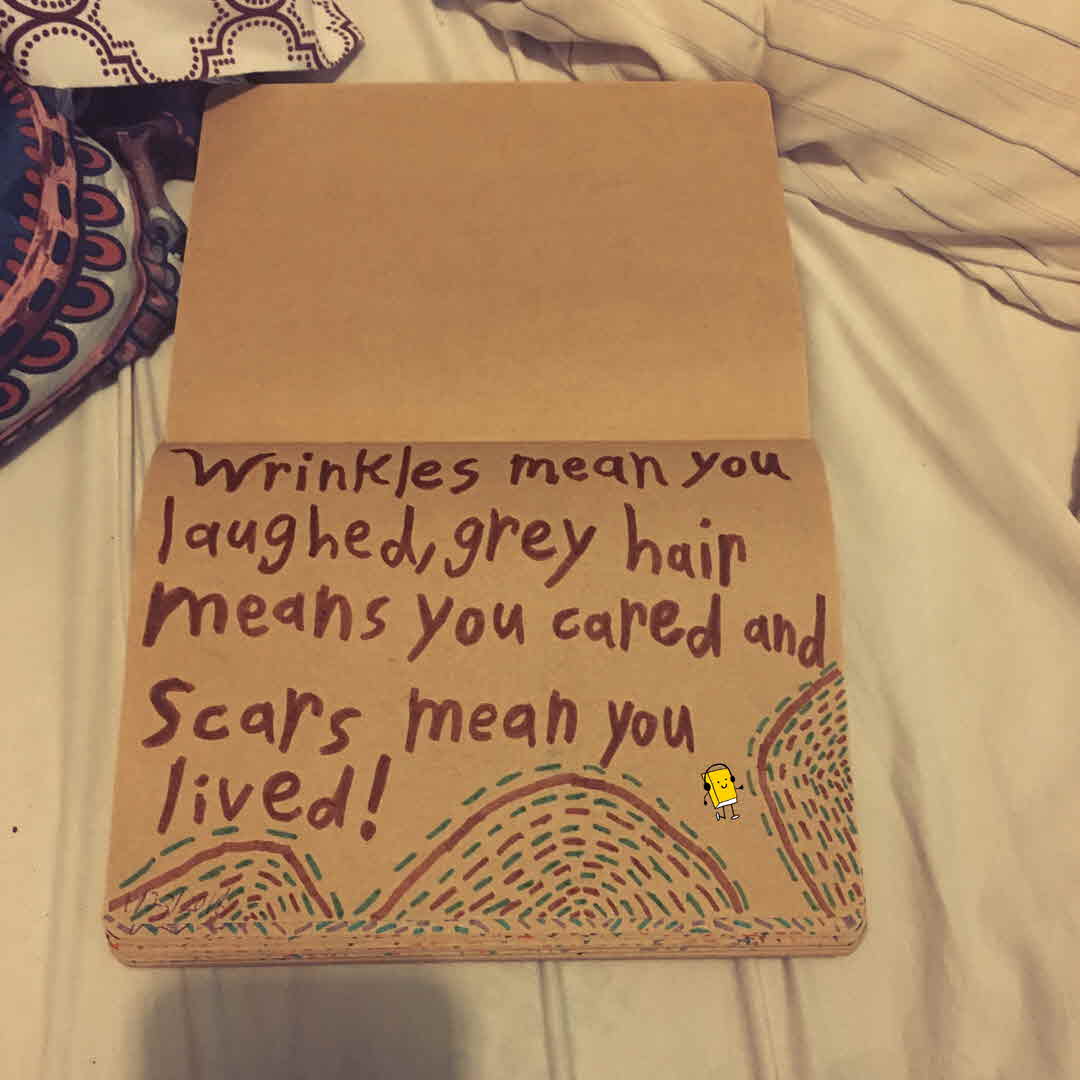 Wrinkles mean you
laughed, grey hair
means you cared and
Scars mean you
lived!